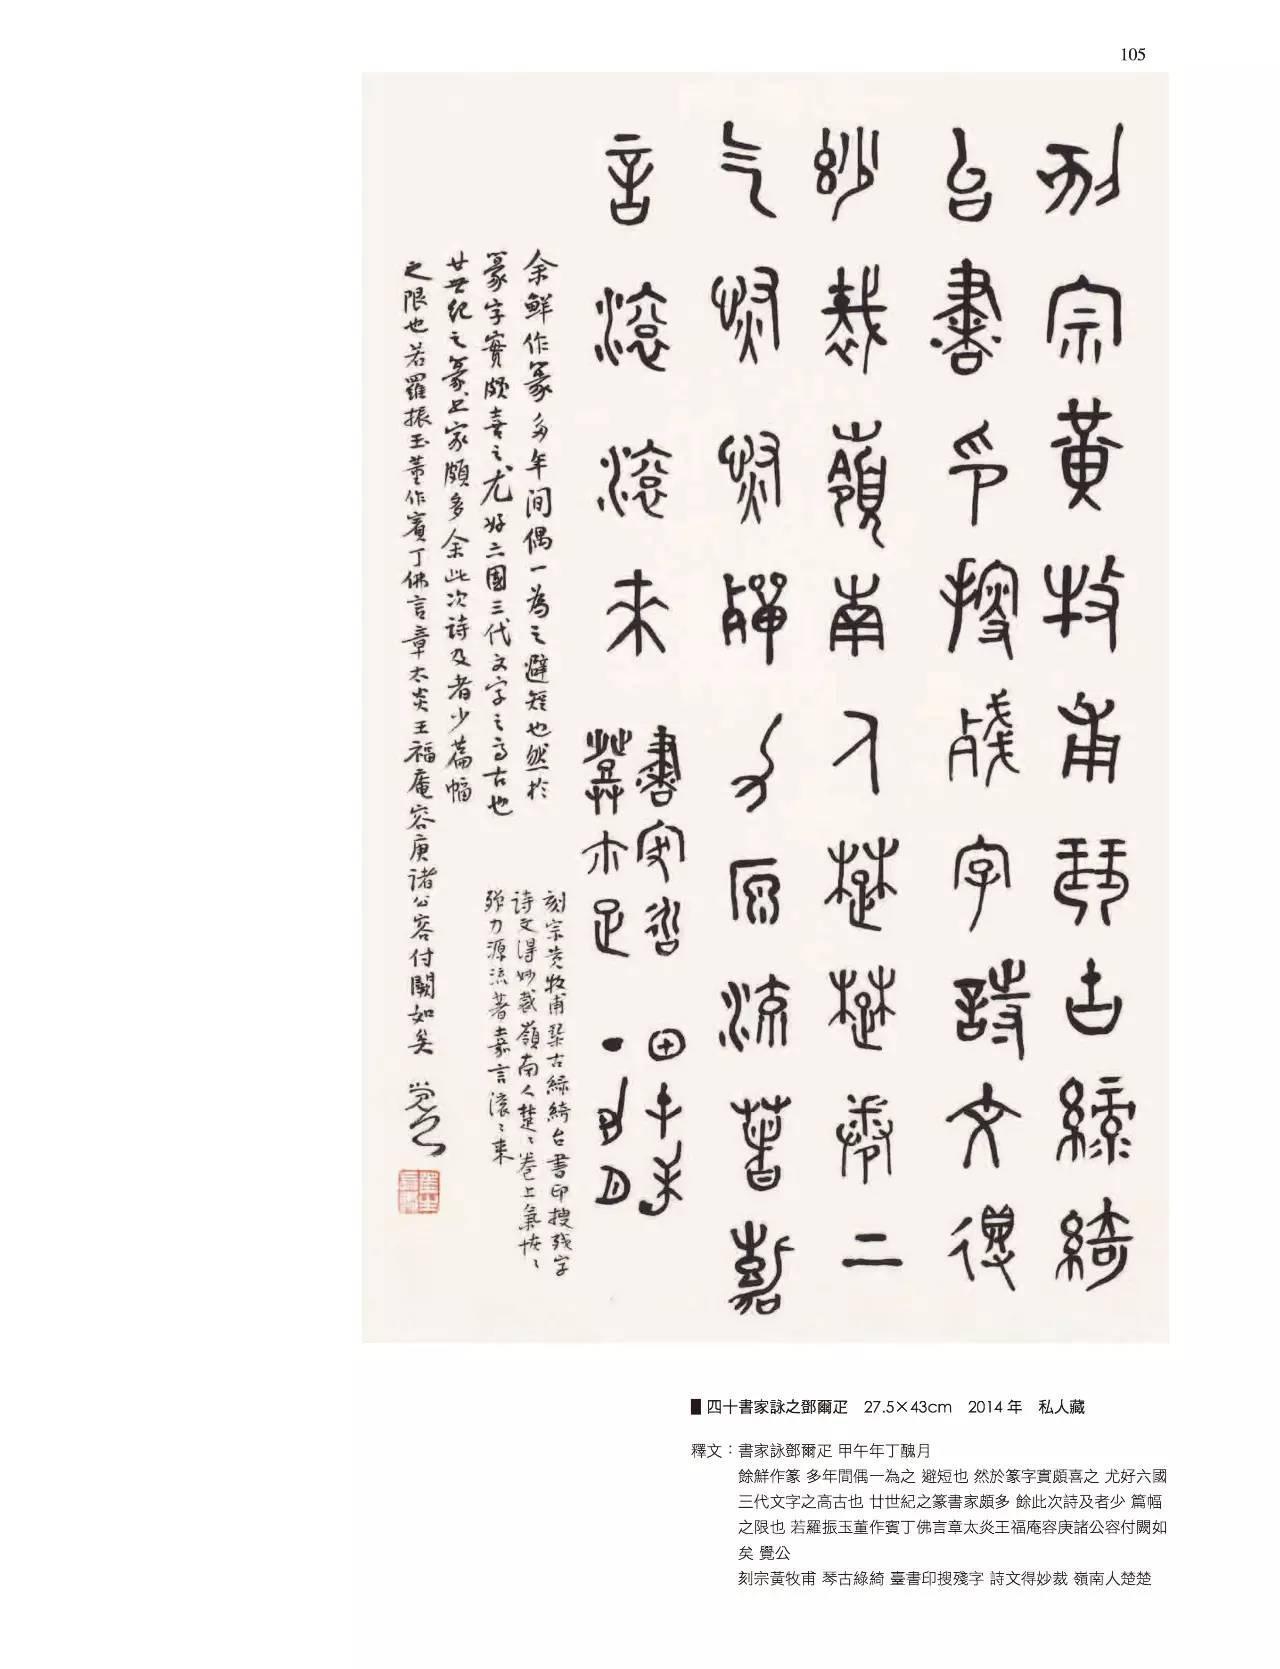 105
刻宗黃牧甫琴古綠綺
台書印搜殘字詩文得
妙裁嶺南人楚楚卷二
气
力源流著嘉
言滾滾來
書家詠
甲午年
丁
月
余鮮作篆多年间偶一為之避短也然於
篆字實頗喜之尤好六國三代文字之高古也
廿世纪之篆书家頗多余此次詩及者少篇幅
之限也若羅振玉董作賓丁佛言章太炎王福庵容庚諸公容付闕如矣 觉公
刻宗黄牧甫琹古綠綺台書印搜残字
詩文得妙裁嶺南人楚〻卷上氣恢〻
力源流著嘉言滚〻来
■四十書家詠之鄧爾疋 27.5×43cm 2014 年 私人藏
釋文：書家詠鄧爾疋 甲午年丁醜月
餘鮮作篆 多年間偶一為之 避短也 然於篆字實頗喜之 尤好六國
三代文字之高古也 廿世紀之篆書家頗多 餘此次詩及者少 篇幅
之限也 若羅振玉董作賓丁佛言章太炎王福庵容庚諸公容付闕如
矣 覺公
刻宗黃牧甫 琴古綠綺 臺書印搜殘字 詩文得妙裁 嶺南人楚楚